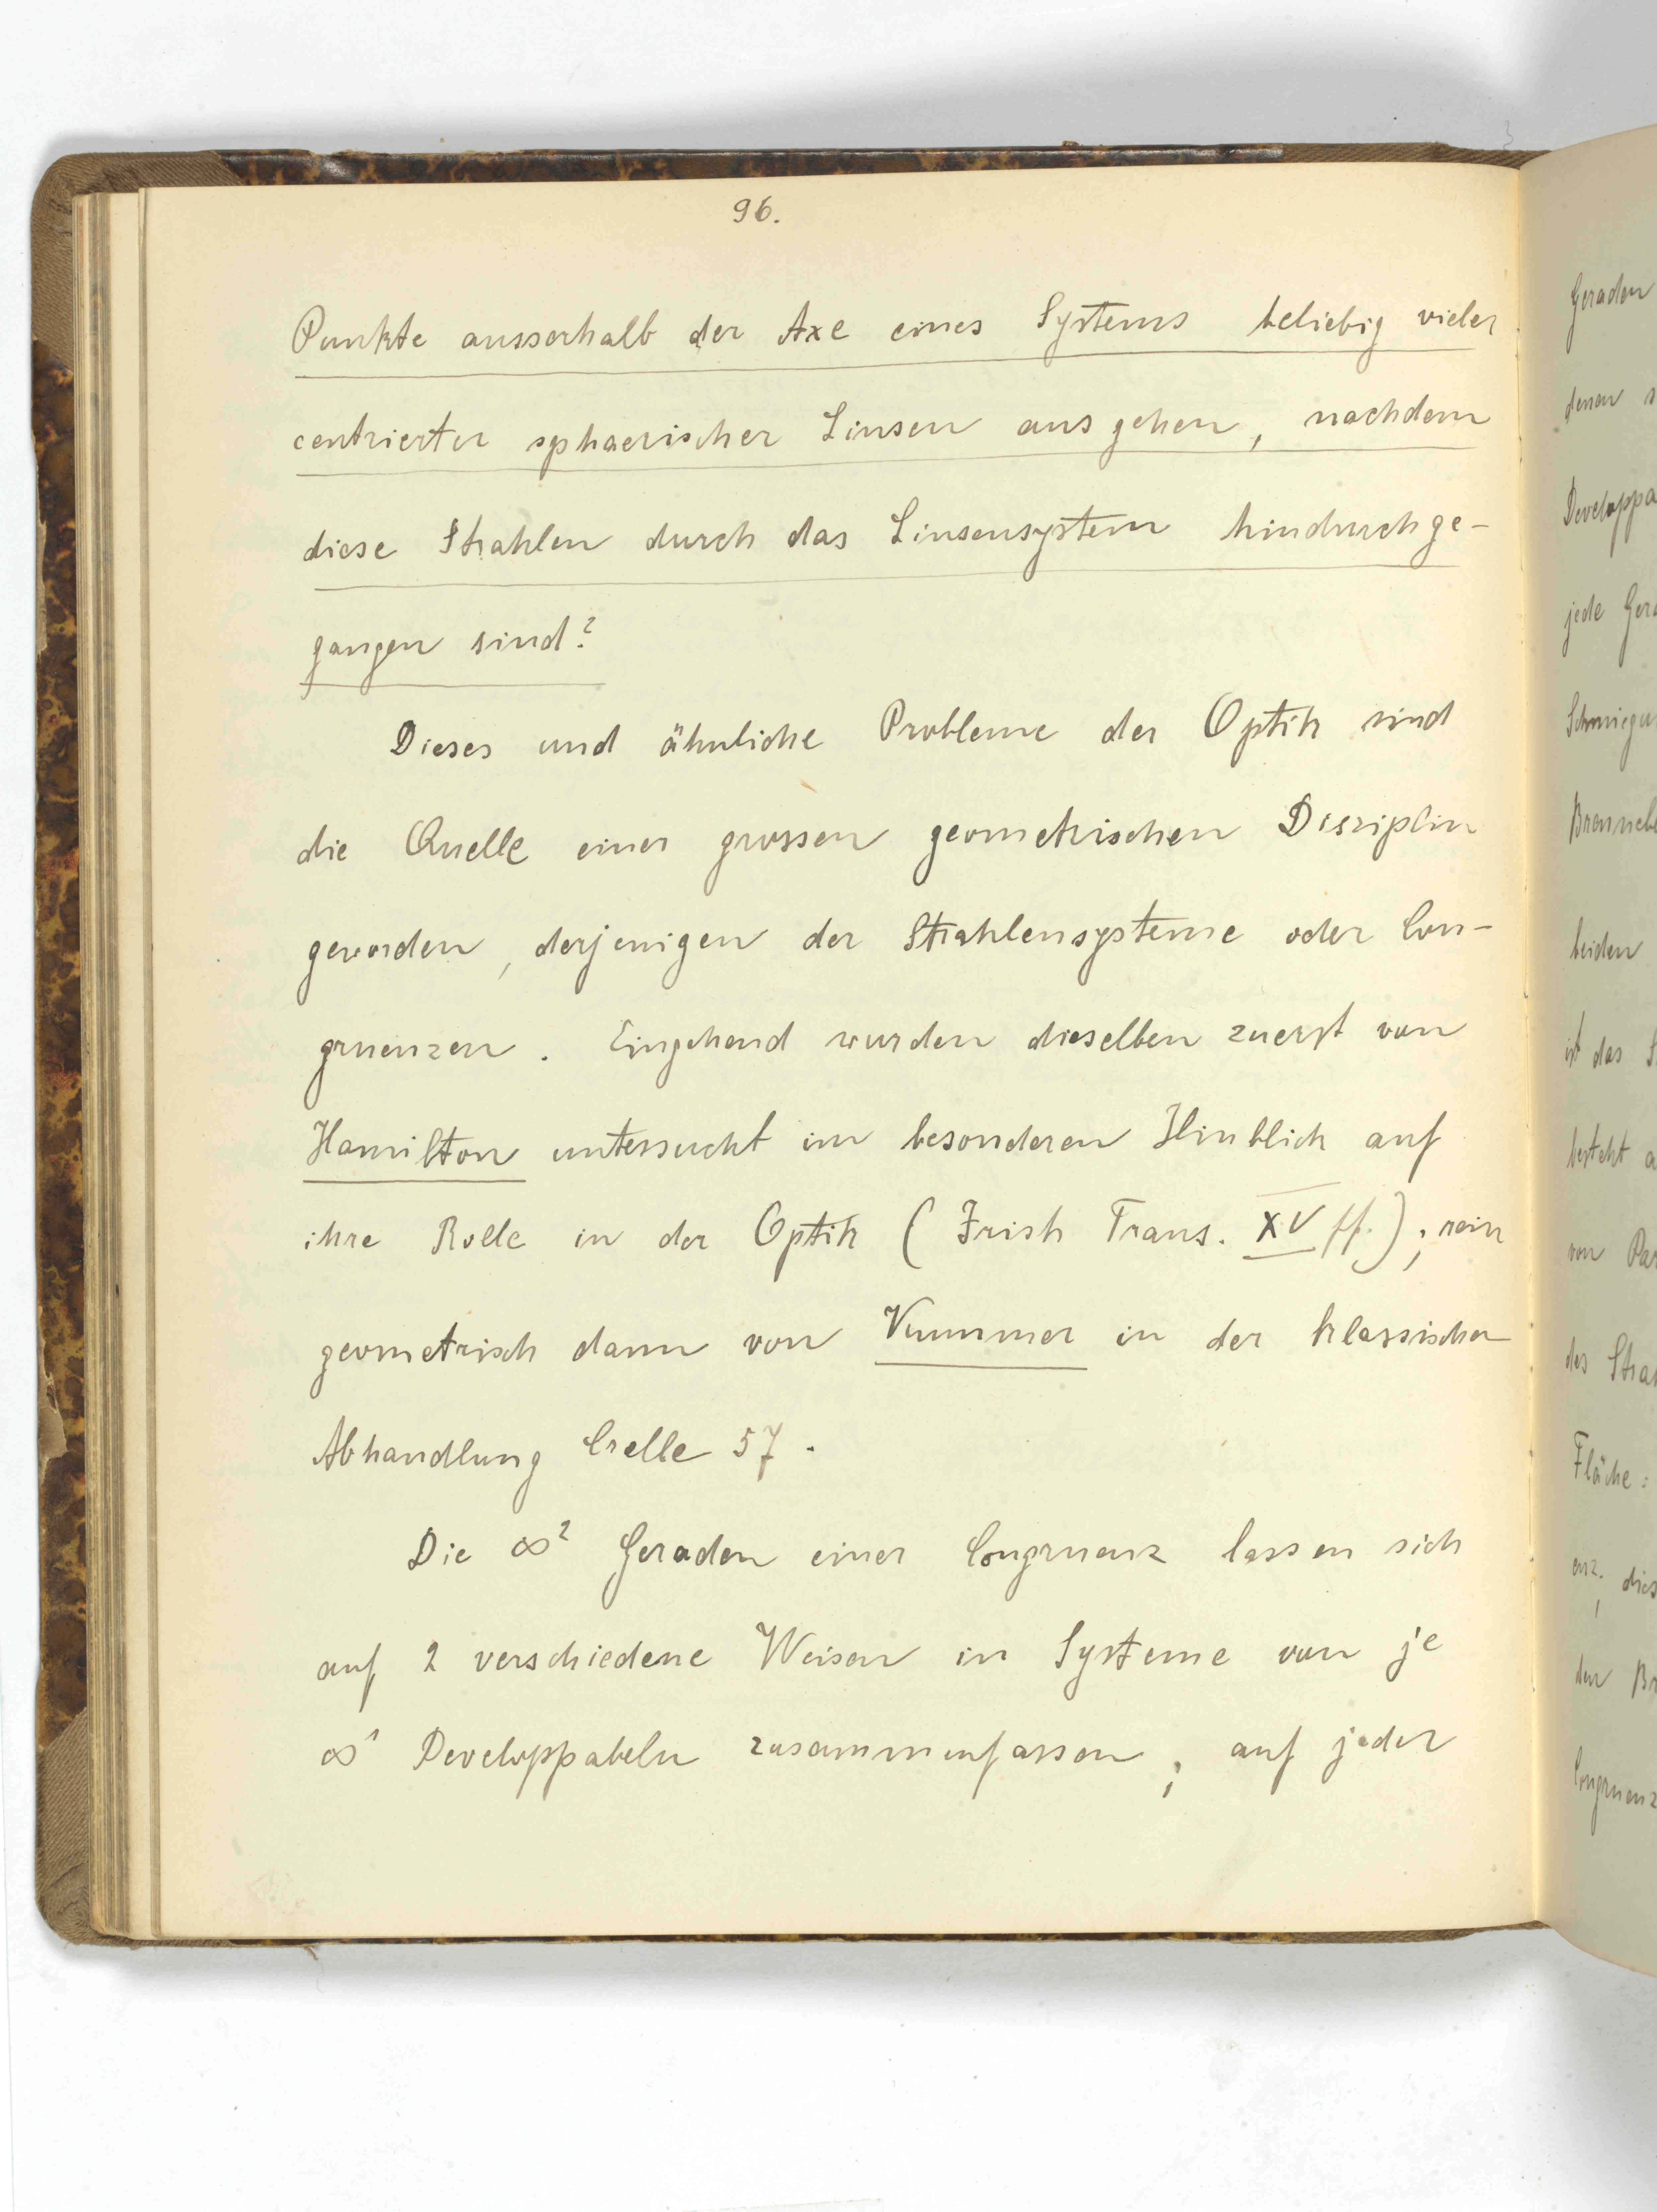 96.
Punkte ausserhalb der Axe eines Systems beliebig vieler
centrierter sphaerischer Linsen ausgehen, nachdem
diese Strahlen durch das Linsensystem hindurchge-
gangen sind?
Dieses und ähnliche Probleme der Optik sind
die Quelle einer grossen geometrischen Disziplin
geworden, derjenigen der Strahlensysteme oder Con-
gruenzen. Eingehend wurden dieselben zuerst von
Hamilton untersucht im besonderen Hinblick auf
ihre Rolle in der Optik (Irish Trans. XV ff.); rein
geometrisch dann von Kummer in der klassischen
Abhandlung Crelle 57.
Die ∞² Geraden einer Congruenz lassen sich
auf 2 verschiedene Weisen in Systeme von je
∞¹ Developpabeln zusammenfassen; auf jeder
Geraden
denen
Developpa
jede Gera
Schmiegu
Brenneb
beiden
ist das S
besteht a
von Par
des Strah
Fläche:
enz; dies
der Br
Congruenz